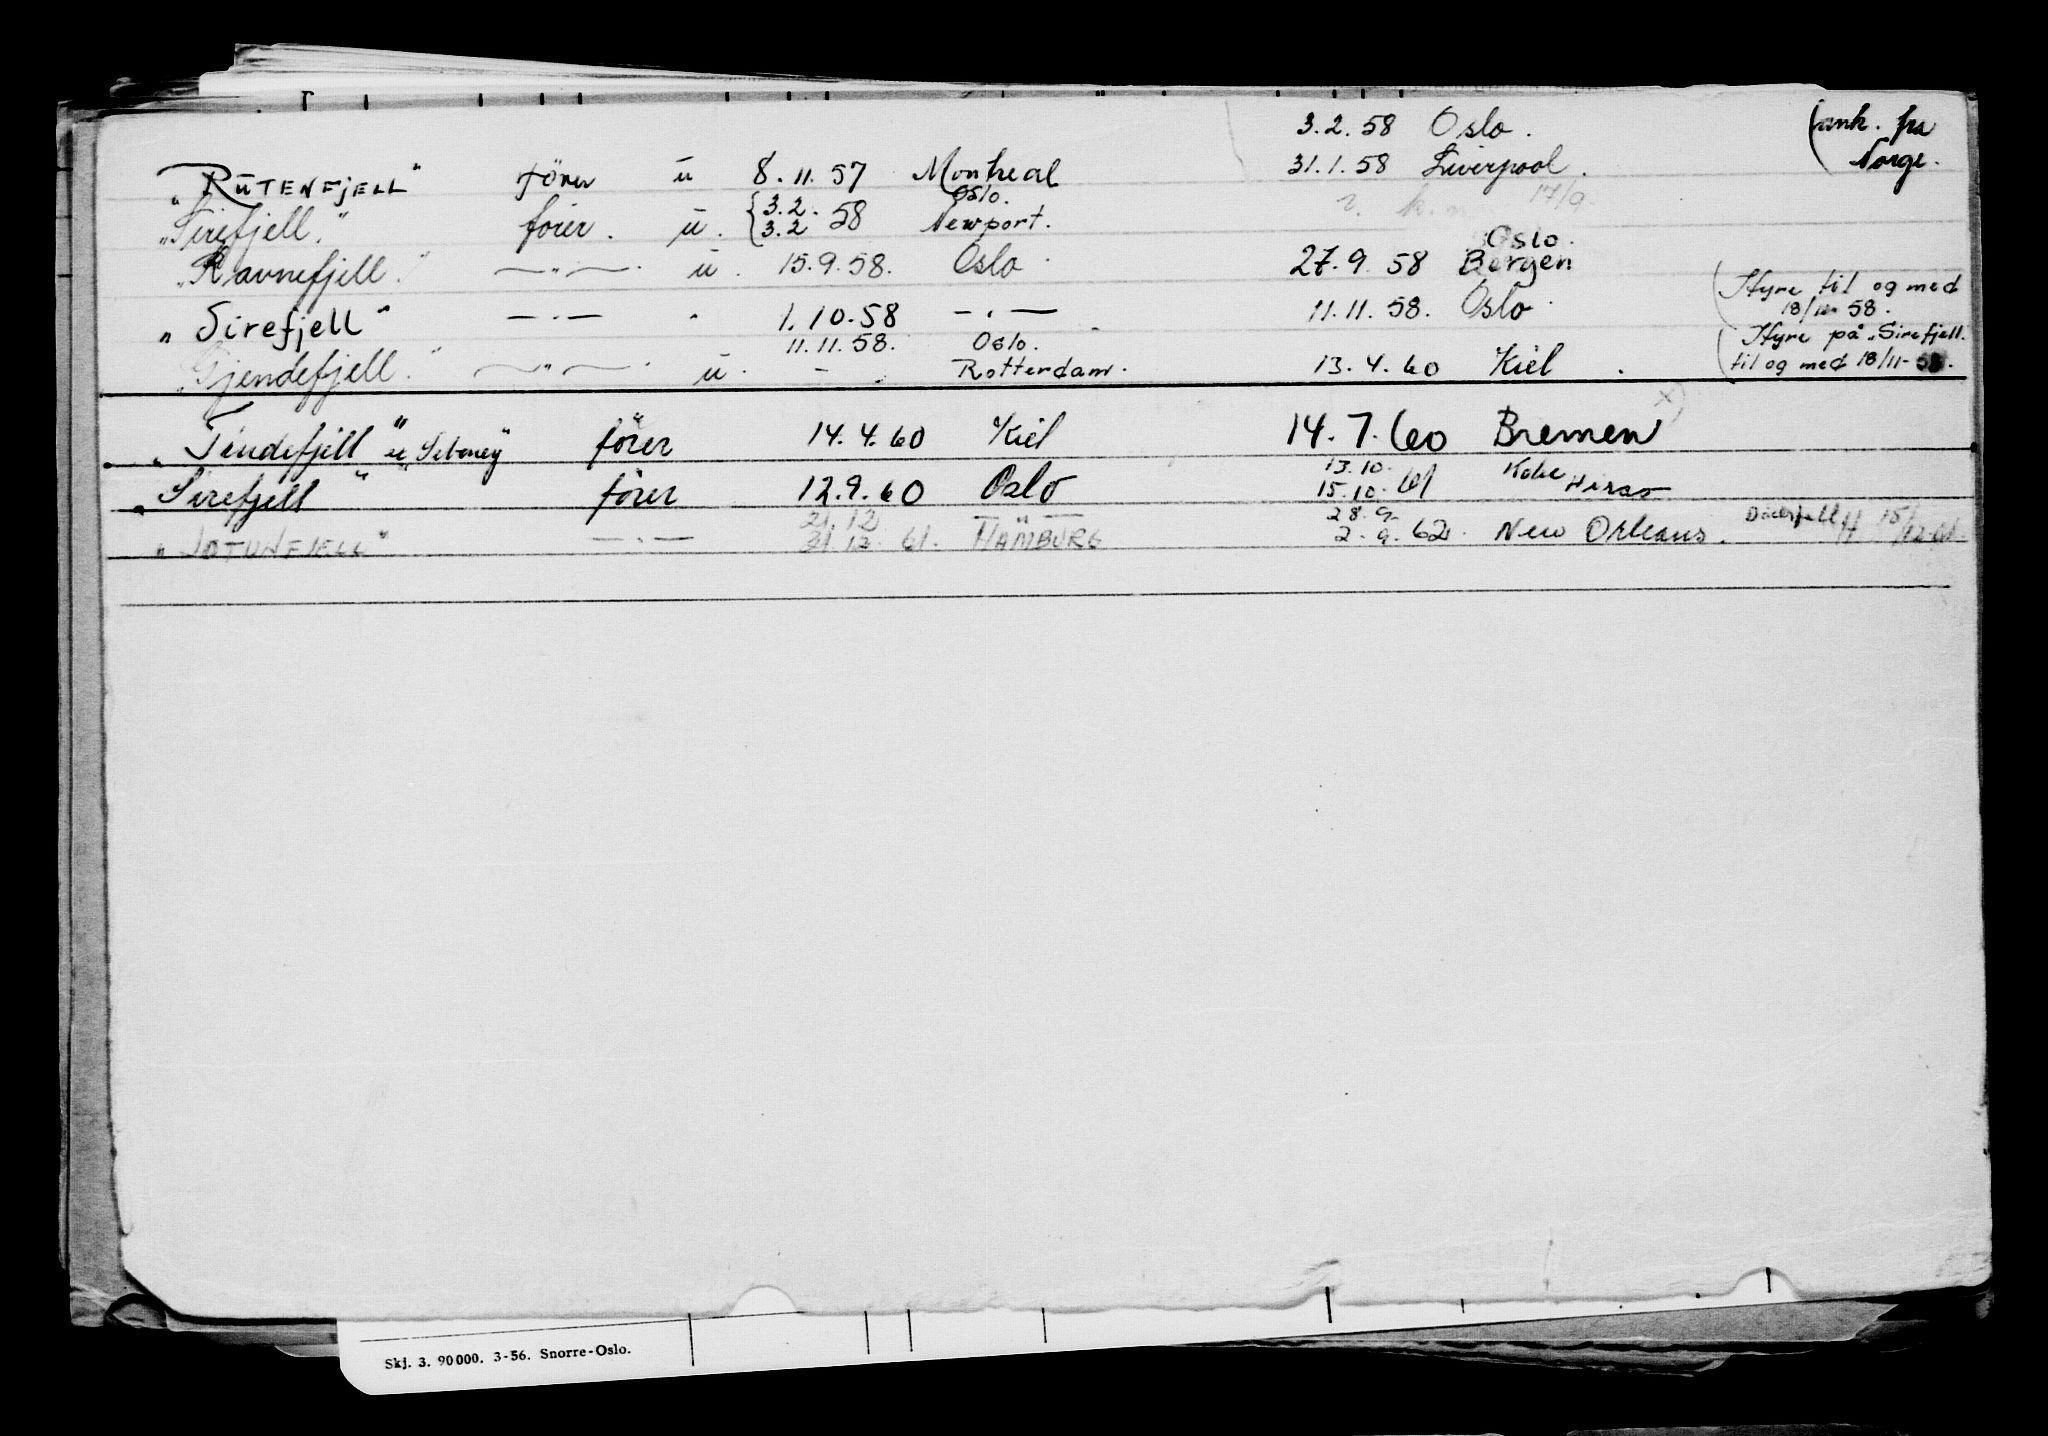 3.2.58 Oslo. (ank. fra
"RUTENFJELL" fører u 8.11.57 Montreal 31.1.58 Liverpool. Norge.
Oslo. 17/9
"Sirefjell." fører. u. {3.2. 3.2 58 Newport.
Oslo.
"Ravnefjell." —"—. u. 15.9.58. Oslo 27.9 58 Bergen
(Hyre til og med
"Sirefjell" —"— " 1.10.58 —"— 11.11.58. Oslo 18/11-58.
11.11.58. Oslo. (Hyre på "Sirefjell.
"Gjendefjell." —"—. u. - Rotterdam. 13.4.60 Kiel. til og med 18/11-58.
x)
"Tindefjell" fører 14.4.60 Kiel 14.7.60 Bremen
13.10. Kobe
"Sirefjell" fører 12.9.60 Oslo 15.10.61
21.12. 28.9.
"JOTUNFJELL" —"— 31.12.61. HAMBURG 2.9.62. New Orleans.
Skj. 3. 90000. 3-56. Snorre-Oslo.